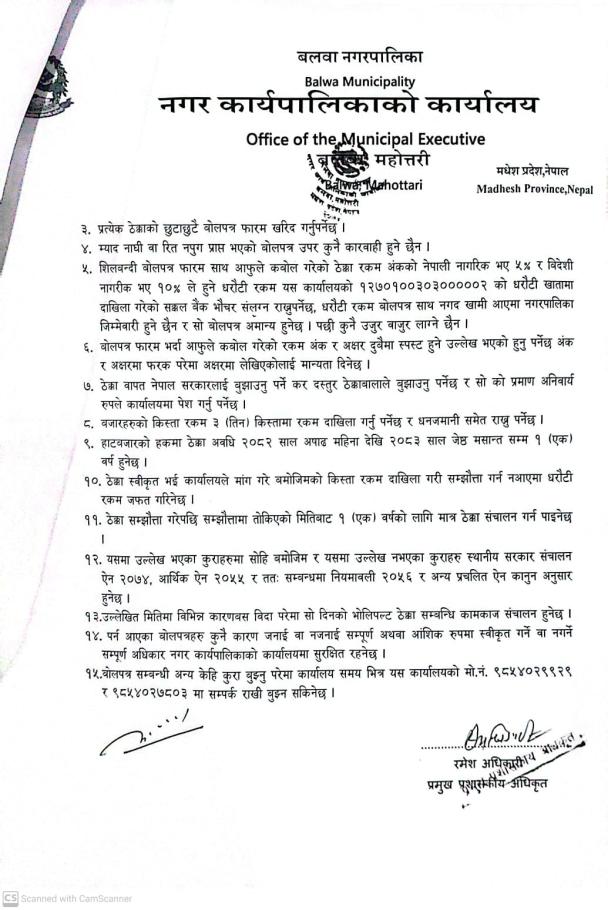 बलवा नगरपालिका
Balwa Municipality
नगर कार्यपालिकाको कार्यालय
Office of the Municipal Executive
बलवा महोत्तरी
मधेश प्रदेश,नेपाल
Balwa, Mahottari
Madhesh Province,Nepal
३. प्रत्येक ठेक्काको छुटाछुटै बोलपत्र फारम खरिद गर्नुपर्नेछ ।
४. म्याद नाघी वा रित नपुग प्राप्त भएको बोलपत्र उपर कुनै कारवाही हुने छैन ।
५. शिलबन्दी बोलपत्र फारम साथ आफुले कबोल गरेको ठेक्का रकम अंकको नेपाली नागरिक भए ५% र विदेशी
नागरीक भए १०% ले हुने धरौटी रकम यस कार्यालयको १२७०१००३०३०००००२ को धरौटी खातामा
दाखिला गरेको सक्कल बैंक भौचर संलग्न राख्नुपर्नेछ, धरौटी रकम बोलपत्र साथ नगद खामी आएमा नगरपालिका
जिम्मेवारी हुने छैन र सो बोलपत्र अमान्य हुनेछ । पछी कुनै उजुर वाजुर लाग्ने छैन ।
६. बोलपत्र फारम भर्दा आफुले कबोल गरेको रकम अंक र अक्षर दुबैमा स्पस्ट हुने उल्लेख भएको हुनु पर्नेछ अंक
र अक्षरमा फरक परेमा अक्षरमा लेखिएकोलाई मान्यता दिनेछ ।
७. ठेक्का वापत नेपाल सरकारलाई बुझाउनु पर्ने कर दस्तुर ठेक्कावालाले बुझाउनु पर्नेछ र सो को प्रमाण अनिवार्य
रुपले कार्यालयमा पेश गर्नु पर्नेछ ।
८. बजारहरुको किस्ता रकम ३ (तिन) किस्तामा रकम दाखिला गर्नु पर्नेछ र धनजमानी समेत राख्नु पर्नेछ ।
९. हाटबजारको हकमा ठेक्का अवधि २०८२ साल अषाढ महिना देखि २०८३ साल जेष्ठ मसान्त सम्म १ (एक)
वर्ष हुनेछ ।
१०. ठेक्का स्वीकृत भई कार्यालयले मांग गरे बमोजिमको किस्ता रकम दाखिला गरी सम्झौत्ता गर्न नआएमा धरौटी
रकम जफत गरिनेछ ।
११. ठेक्का सम्झौत्ता गरेपछि सम्झौत्तामा तोकिएको मितिबाट १ (एक) वर्षको लागि मात्र ठेक्का संचालन गर्न पाइनेछ
।
१२. यसमा उल्लेख भएका कुराहरुमा सोहि बमोजिम र यसमा उल्लेख नभएका कुराहरु स्थानीय सरकार संचालन
ऐन २०७४, आर्थिक ऐन २०५५ र ततः सम्बन्धमा नियमावली २०५६ र अन्य प्रचलित ऐन कानुन अनुसार
हुनेछ ।
१३.उल्लेखित मितिमा विभिन्न कारणबस विदा परेमा सो दिनको भोलिपल्ट ठेक्का सम्बन्धि कामकाज संचालन हुनेछ ।
१४. पर्न आएका बोलपत्रहरु कुनै कारण जनाई वा नजनाई सम्पूर्ण अथवा आंशिक रुपमा स्वीकृत गर्ने वा नगर्ने
सम्पूर्ण अधिकार नगर कार्यपालिकाको कार्यालयमा सुरक्षित रहनेछ ।
१५.बोलपत्र सम्बन्धी अन्य केहि कुरा बुझ्नु परेमा कार्यालय समय भित्र यस कार्यालयको मो.नं. ९८५४०२९९२९
र ९८५४०२७८०३ मा सम्पर्क राखी बुझ्न सकिनेछ ।
रमेश अधिकारी
प्रमुख प्रशासकीय अधिकृत
CS Scanned with CamScanner